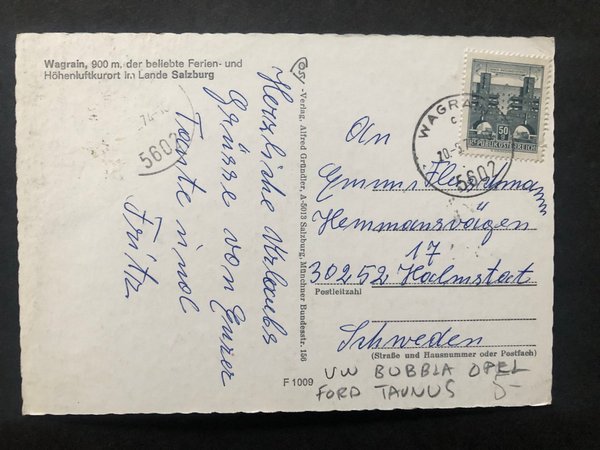 Wagrain, 900 m, der beliebte Ferien- und
Höhenluftkurort im Lande Salzburg
Herzliche Urlaubs
Grüsse von Eurer
Tante u nol
Fritz
-Verlag, Alfred Gründler, A-5013 Salzburg, Münchner Bundesstr. 156
An
Emmi
Hemmansvägen
17
30252 Halmstat
Postleitzahl
Schweden
(Straße und Hausnummer oder Postfach)
F 1009
VW BUBBLA OPEL
FORD TAUNUS 5-
WAGRA
5602
50
REPUBLIK ÖSTERREICH
74-
5602